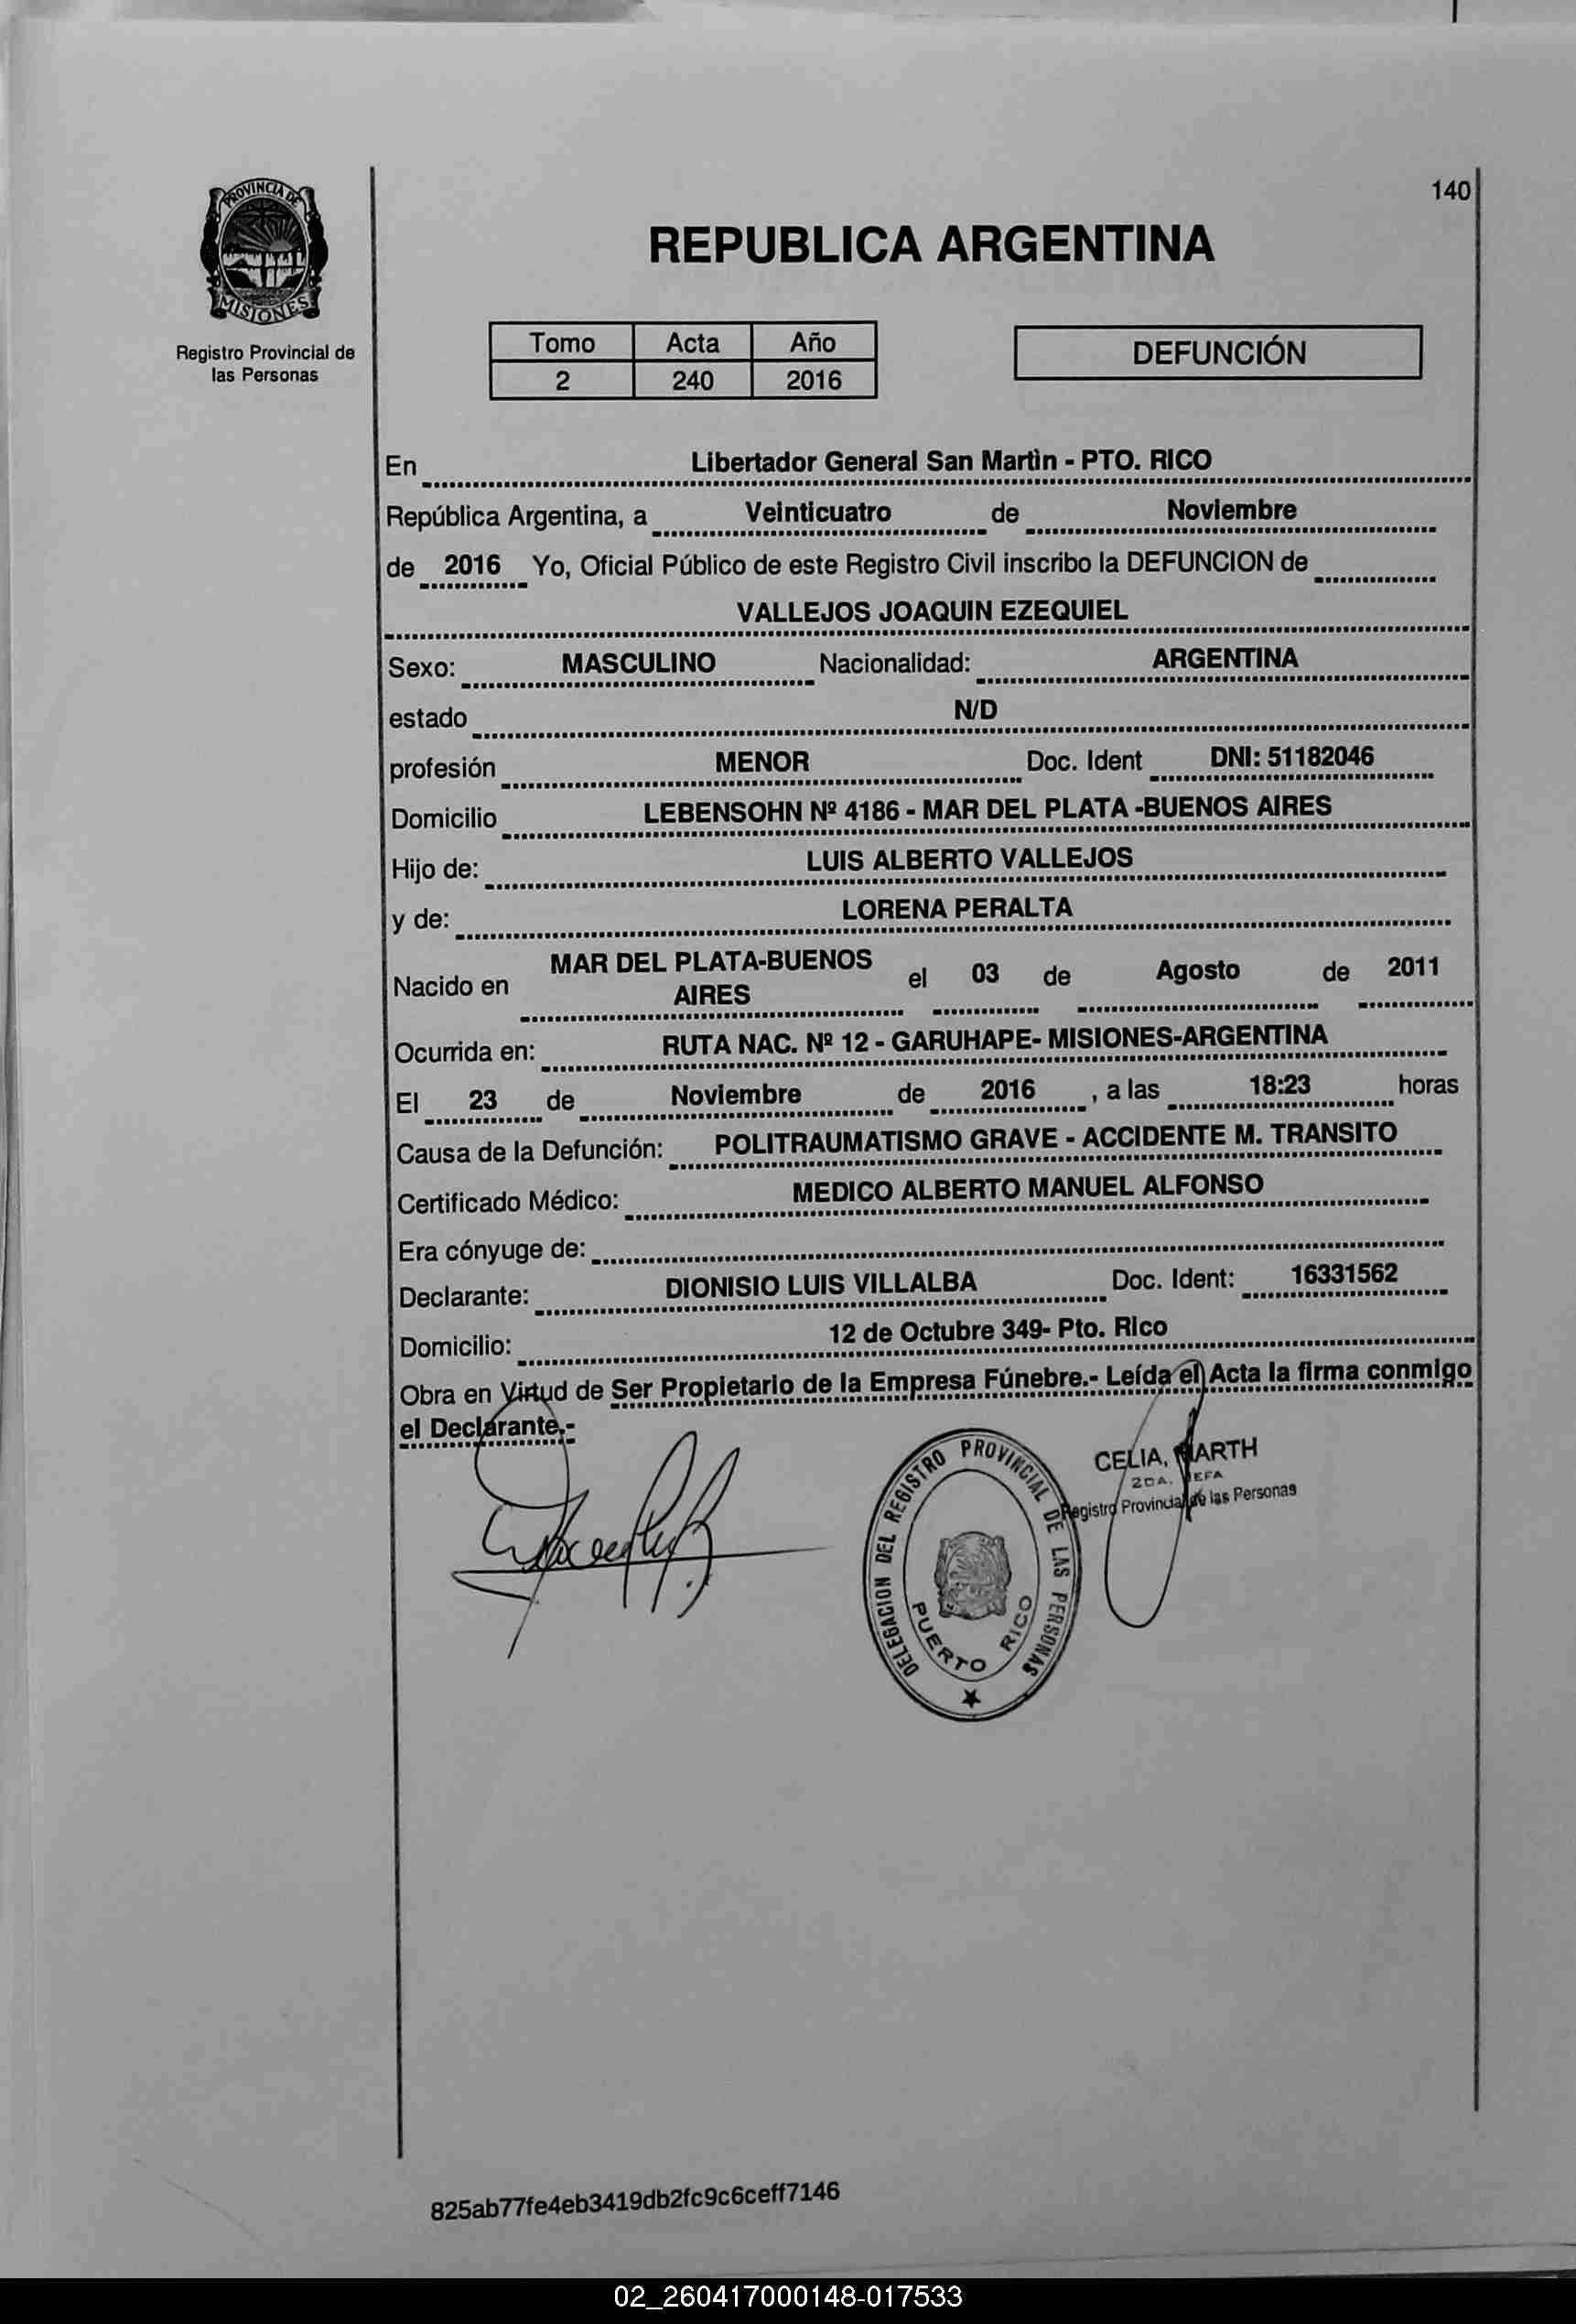 PROVINCIA DE
MISIONES
Registro Provincial de
las Personas
140
REPUBLICA ARGENTINA
Tomo Acta Año
2 240 2016
DEFUNCIÓN
En Libertador General San Martìn - PTO. RICO
República Argentina, a Veinticuatro de Noviembre
de 2016 Yo, Oficial Público de este Registro Civil inscribo la DEFUNCION de
VALLEJOS JOAQUIN EZEQUIEL
Sexo: MASCULINO Nacionalidad: ARGENTINA
estado N/D
profesión MENOR Doc. Ident DNI: 51182046
Domicilio LEBENSOHN Nº 4186 - MAR DEL PLATA -BUENOS AIRES
Hijo de: LUIS ALBERTO VALLEJOS
y de: LORENA PERALTA
Nacido en MAR DEL PLATA-BUENOS AIRES el 03 de Agosto de 2011
Ocurrida en: RUTA NAC. Nº 12 - GARUHAPE- MISIONES-ARGENTINA
El 23 de Noviembre de 2016 , a las 18:23 horas
Causa de la Defunción: POLITRAUMATISMO GRAVE - ACCIDENTE M. TRANSITO
Certificado Médico: MEDICO ALBERTO MANUEL ALFONSO
Era cónyuge de:
Declarante: DIONISIO LUIS VILLALBA Doc. Ident: 16331562
Domicilio: 12 de Octubre 349- Pto. Rico
Obra en Virtud de Ser Propietario de la Empresa Fúnebre.- Leída el Acta la firma conmigo
el Declarante.-
DELEGACION DEL REGISTRO PROVINCIAL DE LAS PERSONAS
PUERTO RICO
CELIA, MARTH
2DA. JEFA
Registro Provincial de las Personas
825ab77fe4eb3419db2fc9c6ceff7146
02_260417000148-017533